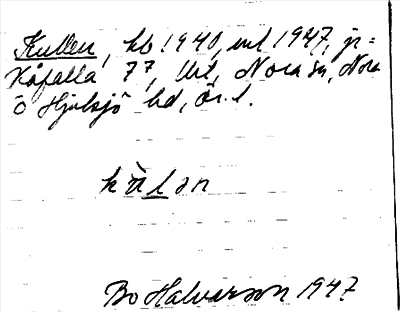 Kullen, hb 1940, ml 1947, jr =
Kåfalla 7⁷, lht, Nora sn, Nora
o Hjulsjö hd, Ör. l.
kàlən
Bo Halvarson 1947